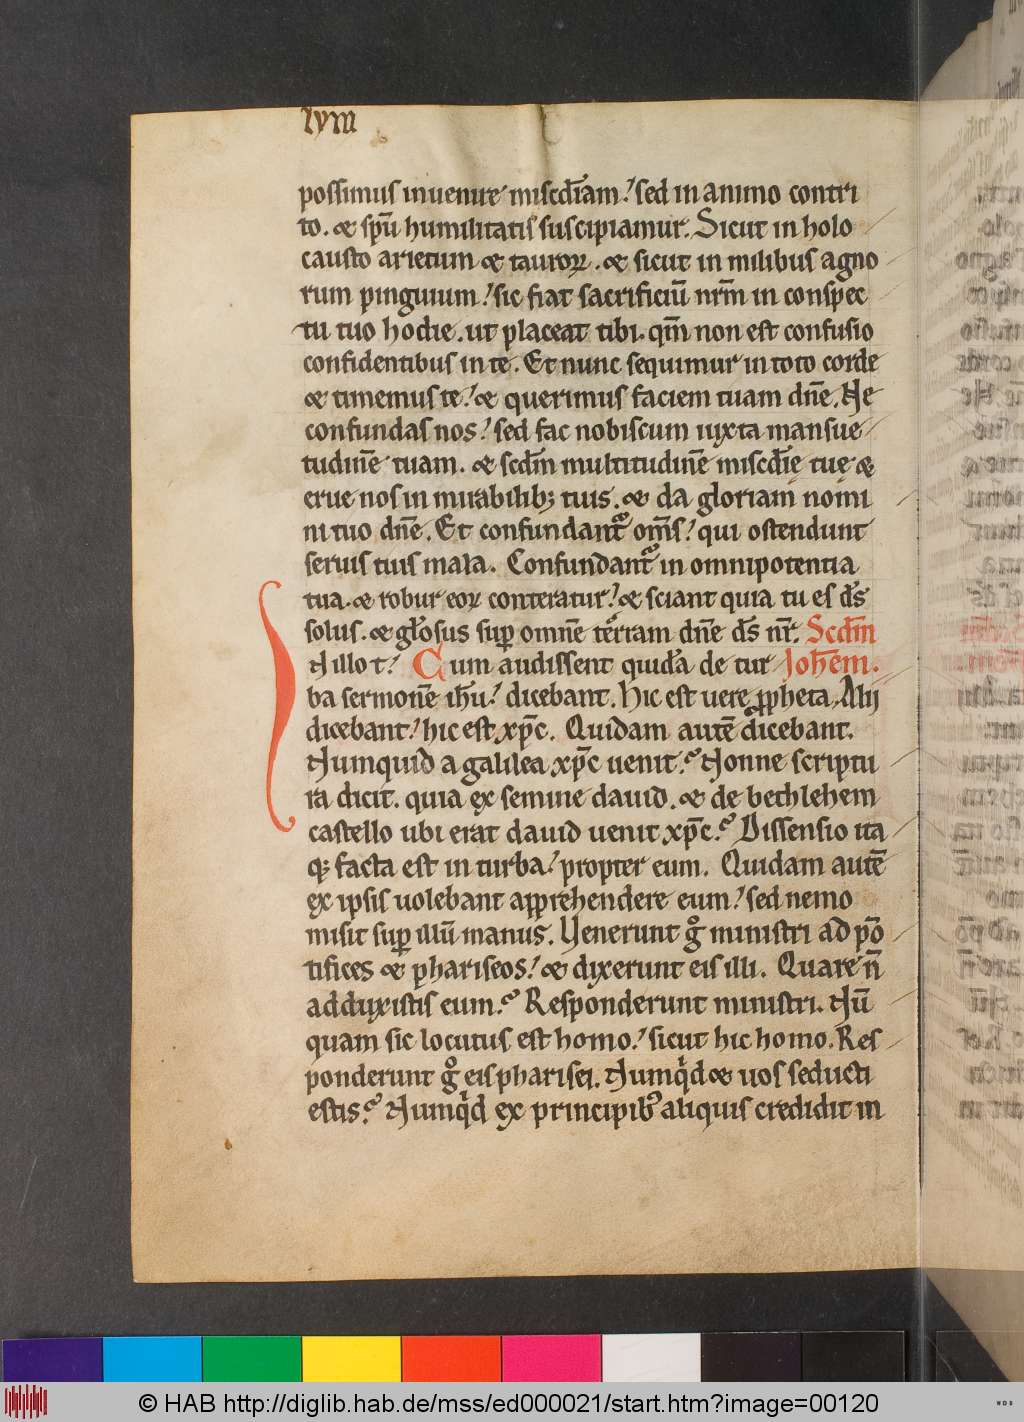 lym
possimus inuenire mis̅cdiam. sed in animo contri
to. & sp̅u humilitatis suscipiamur. Sicut in holo
causto arietum & tauroꝝ. & sicut in milibus agno
rum pinguium. sic fiat sacrificiū nr̅m in conspec
tu tuo hodie. ut placeat tibi. qm̅ non est confusio
confidentibus in te. Et nunc sequimur in toto corde
& timemus te. & querimus faciem tuam dn̅e. Ne
confundas nos. sed fac nobiscum iuxta mansue
tudinē tuam. & scd̅m multitudinē mis̅cdię tuę &
erue nos in mirabilibꝫ tuis. & da gloriam nomi
ni tuo dn̅e. Et confundant᷑ om̅s. qui ostendunt
seruis tuis mala. Confundant᷑ in omnipotentia
tua. & robur eoꝝ conteratur. & sciant quia tu es d̅s
solus. & gl̅osus sup̅ omnē terram dn̅e d̅s nr̅. Scd̅m
N illo t. Cum audissent quidā de tur Joh̅em.
ba sermonē ih̅u. dicebant. Hic est uere ꝓpheta. Alij
dicebant. hic est xp̅c. Quidam autē dicebant.
Numquid a galilea xp̅c uenit? Nonne scriptu
ra dicit. quia ex semine dauid. & de bethlehem
castello ubi erat dauid uenit xp̅c? Dissensio ita
qꝫ facta est in turba. propter eum. Quidam autē
ex ipsis uolebant apprehendere eum. sed nemo
misit sup̅ illū manus. Venerunt gͦ ministri ad pō
tifices & phariseos. & dixerunt eis illi. Quare n̅
adduxistis eum? Responderunt ministri. Nū
quam sic locutus est homo. sicut hic homo. Res
ponderunt gͦ eis pharisei. Numqͥd & uos seducti
estis? Numqͥd ex principibꝰ aliquis credidit in
© HAB http://diglib.hab.de/mss/ed000021/start.htm?image=00120